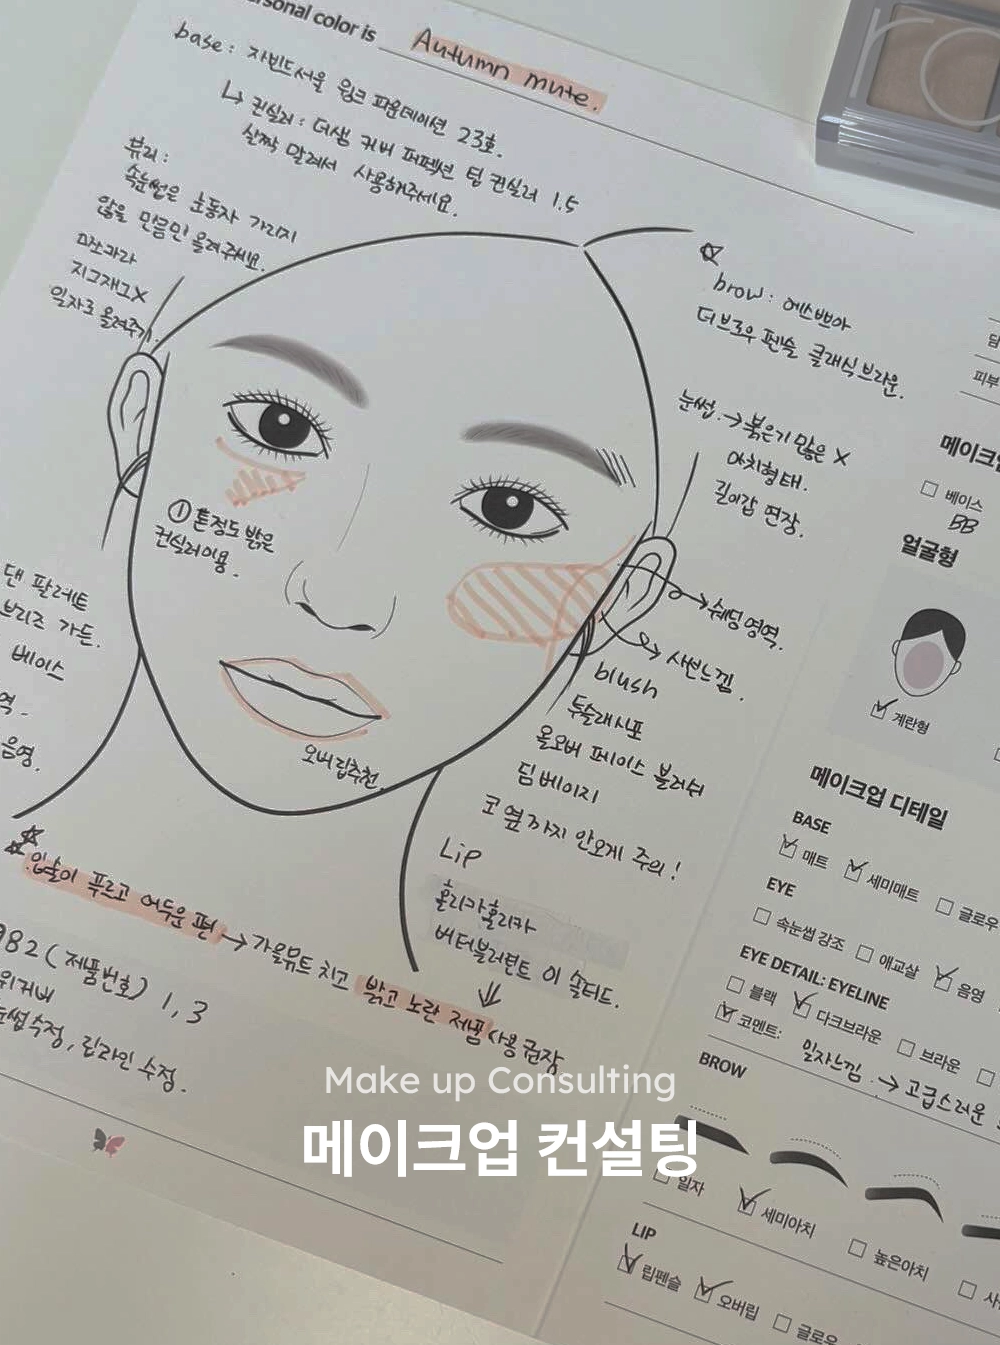 rsonal color is Autumn mute.
base : 자빈드서울 윙크 파운데이션 23호.
↳ 컨실러 : 더샘 커버 퍼펙션 팁 컨실러 1.5
살짝 말려서 사용해주세요.
뷰러 :
속눈썹은 눈동자 가리지
않을 만큼만 올려주세요.
마스카라
지그재그X
일자로 올려주기.
brow : 에스쁘아
더브로우 펜슬 클래식브라운.
눈썹. → 붉은기 많은 X
아치형태.
길이감 연장.
① 톤정도 밝은
컨실러이용.
→ 쉐딩영역.
→ 사선느낌.
blush
투슬래시포
올오버 페이스 블러쉬
딤베이지
코 옆까지 안오게 주의!
오버립추천.
댄 팔레트
브리즈 가든.
베이스
역.
음영.
Lip
홀리카홀리카
버터블러틴트 01 솔티드.
입술이 푸르고 어두운 편 → 가을뮤트 치고 밝고 노란 제품 사용 권장
982 (제품번호) 1, 3
위커버
눈썹수정, 립라인 수정.
피부
메이크업
베이스
BB
얼굴형
계란형
메이크업 디테일
BASE
매트 세미매트 글로우
EYE
속눈썹 강조 애교살 음영
EYE DETAIL: EYELINE
블랙 다크브라운 브라운
코멘트: 일자느낌. → 고급스러운
BROW
일자 세미아치 높은아치
LIP
립펜슬 오버립 글로우
Make up Consulting
메이크업 컨설팅